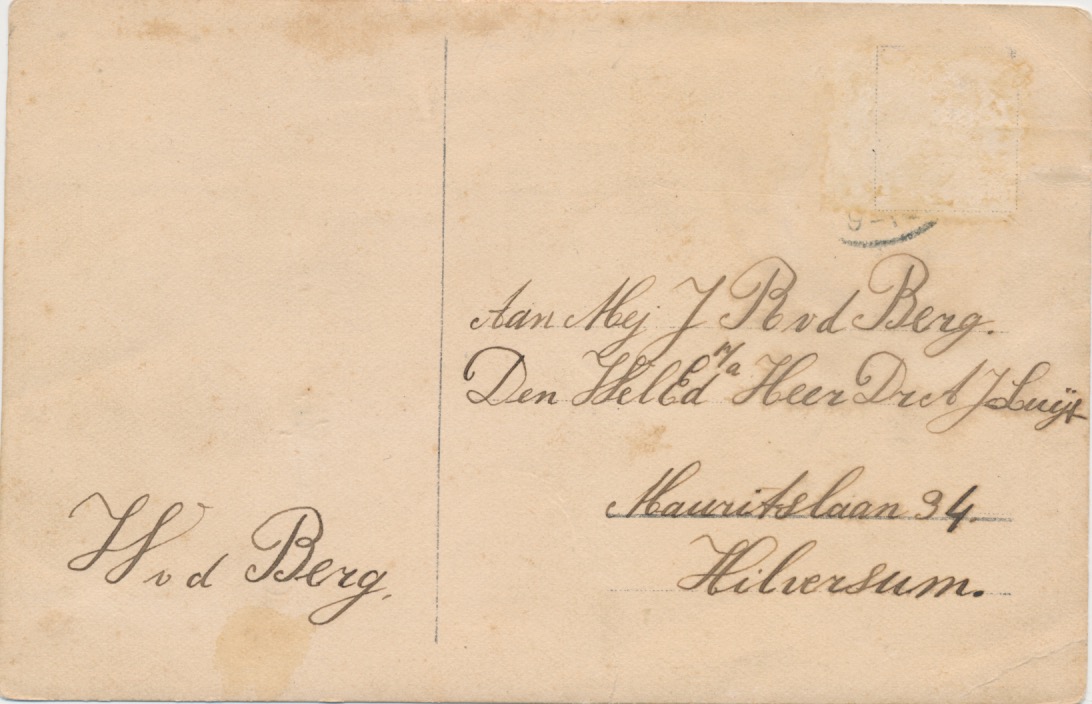 Aan Mej J R v d Berg.
Den WelEd n/a Heer Dr A J Luijt
Mauritslaan 34.
Hilversum.
W v d Berg.